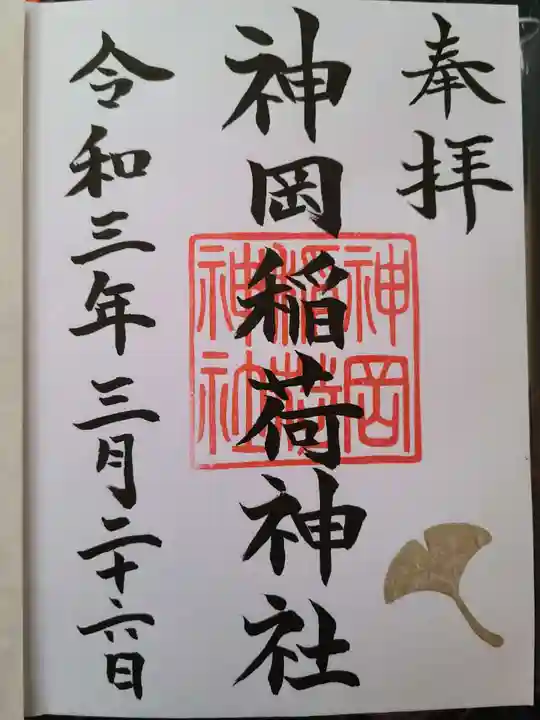 奉拝
神岡稲荷神社
神岡稲荷神社
令和三年三月二十六日